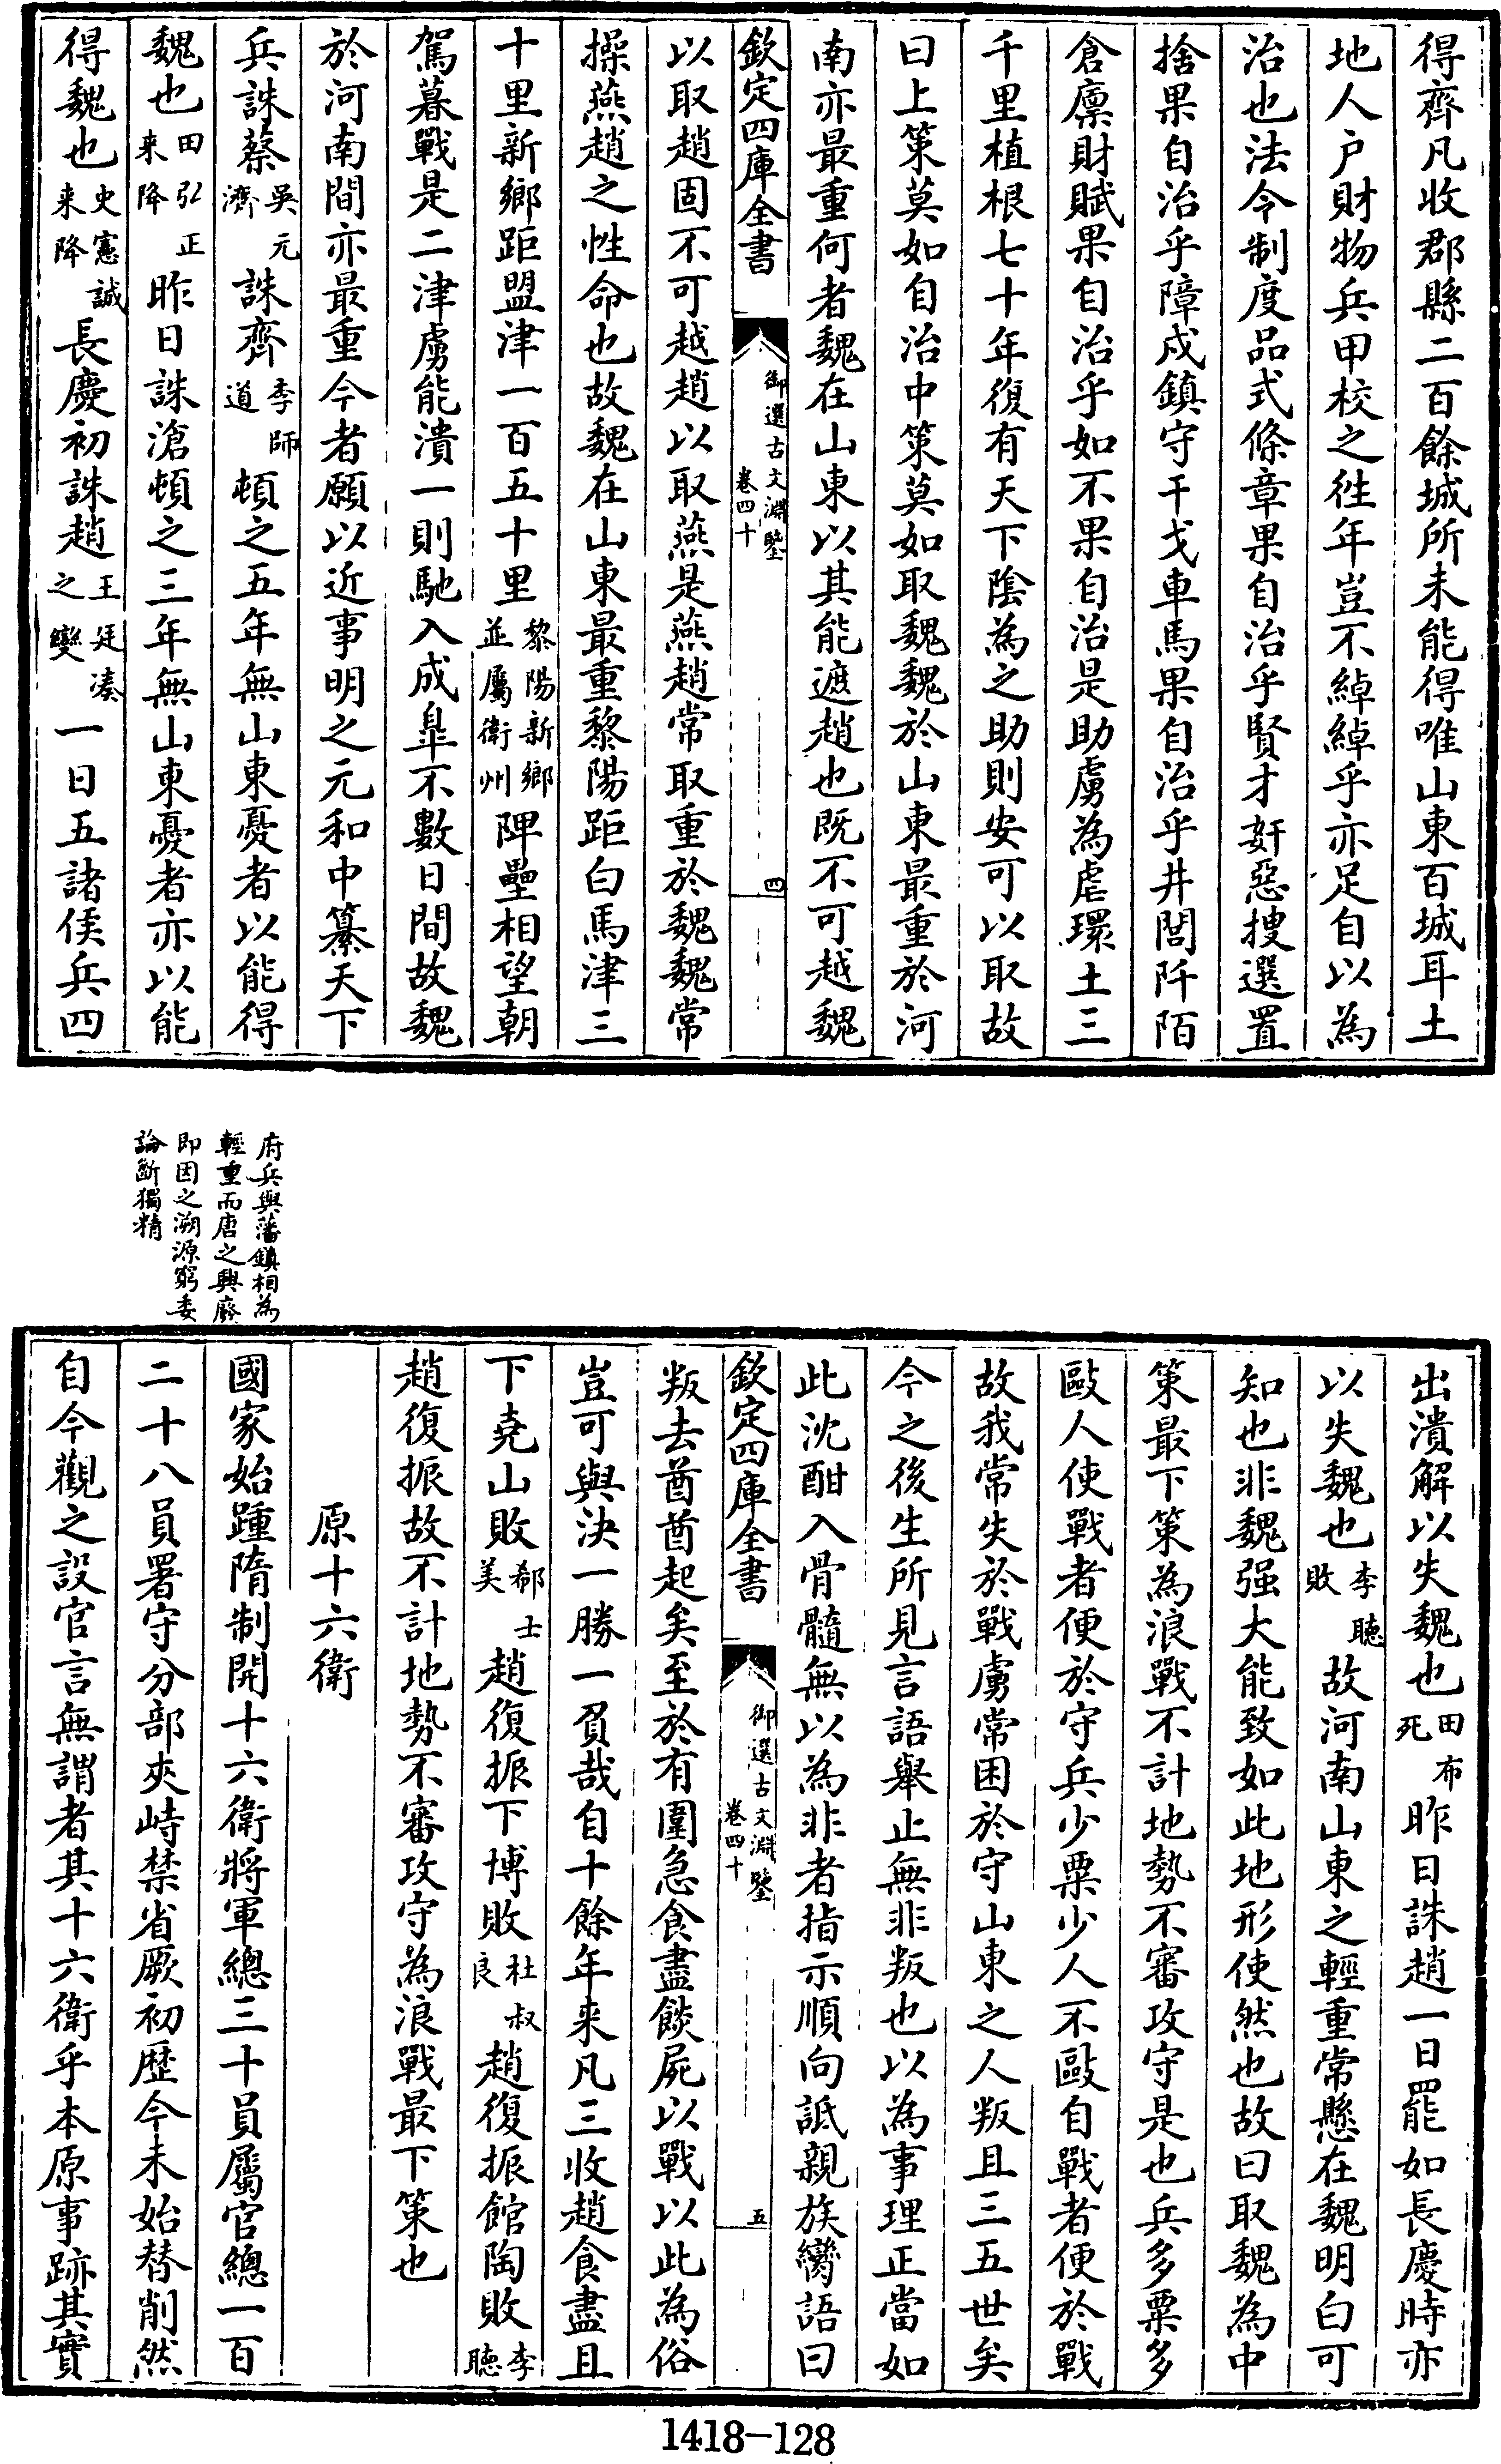 得齊凡收郡縣二百餘城所未能得唯山東百城耳土
地人户財物兵甲校之徃年豈不綽綽乎亦足自以為
治也法令制度品式條章果自治乎賢才奸惡搜選置
捨果自治乎障戍鎮守干戈車馬果自治乎井閭阡陌
倉廩財賦果自治乎如不果自治是助虜為虐環土三
千里植根七十年復有天下陰為之助則安可以取故
曰上策莫如自治中策莫如取魏魏於山東最重於河
南亦最重何者魏在山東以其能遮趙也既不可越魏
欽定四庫全書
御選古文淵鑒
卷四十
四
以取趙固不可越趙以取燕是燕趙常取重於魏魏常
操燕趙之性命也故魏在山東最重黎陽距白馬津三
十里新鄉距盟津一百五十里黎陽新鄉並屬衛州陴壘相望朝
駕暮戰是二津虜能潰一則馳入成臯不數日間故魏
於河南間亦最重今者願以近事明之元和中纂天下
兵誅蔡吳元濟誅齊李師道頓之五年無山東憂者以能得
魏也田弘正来降昨日誅滄頓之三年無山東憂者亦以能
得魏也史憲誠来降長慶初誅趙王廷湊之變一日五諸侯兵四
府兵與藩鎮相為
輕重而唐之興廢
即因之溯源窮委
論斷獨精
出潰解以失魏也田布死昨日誅趙一日罷如長慶時亦
以失魏也李聽敗故河南山東之輕重常懸在魏明白可
知也非魏强大能致如此地形使然也故曰取魏為中
策最下策為浪戰不計地勢不審攻守是也兵多粟多
敺人使戰者便於守兵少粟少人不敺自戰者便於戰
故我常失於戰虜常困於守山東之人叛且三五世矣
今之後生所見言語舉止無非叛也以為事理正當如
此沈酣入骨髓無以為非者指示順向詆親族臠語曰
欽定四庫全書
御選古文淵鑒
卷四十
五
叛去酋酋起矣至於有圍急食盡餤屍以戰以此為俗
豈可與決一勝一負哉自十餘年来凡三收趙食盡且
下堯山敗郗士美趙復振下博敗杜叔良趙復振館陶敗李聽
趙復振故不計地勢不審攻守為浪戰最下策也
原十六衛
國家始踵隋制開十六衛將軍總三十員屬官總一百
二十八員署守分部夾峙禁省厥初歴今未始替削然
自今觀之設官言無謂者其十六衛乎本原事跡其實
1418-128